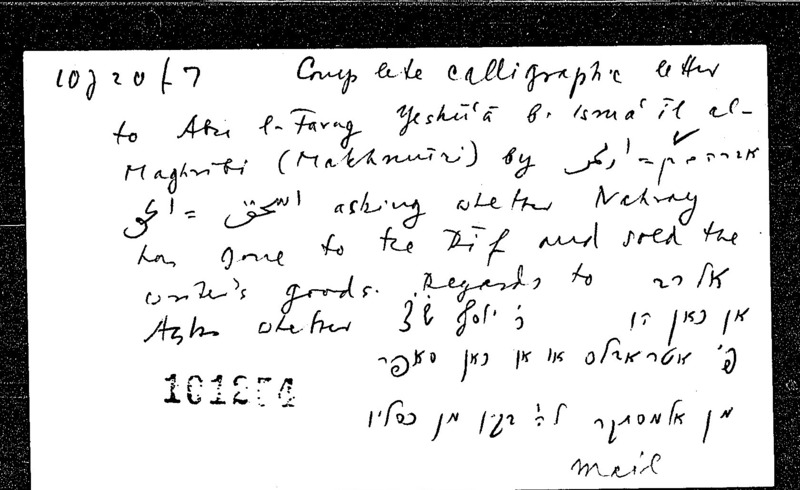 10J 20 f 7 Complete calligraphic letter
to Abu l-Faraj Yeshū'ā b. Ismā'īl al-
Maghribi (Makhmūrī) by
= اسحق asking whether Nahray
has gone to the Rif and sold the
writer's goods. Regards to אל רב
Asks whether אן כאן הו
פי אטראבלס או אן כאן סאפר
101254
מן אלמסתקר לה׳ בקין מן כסליו
mail